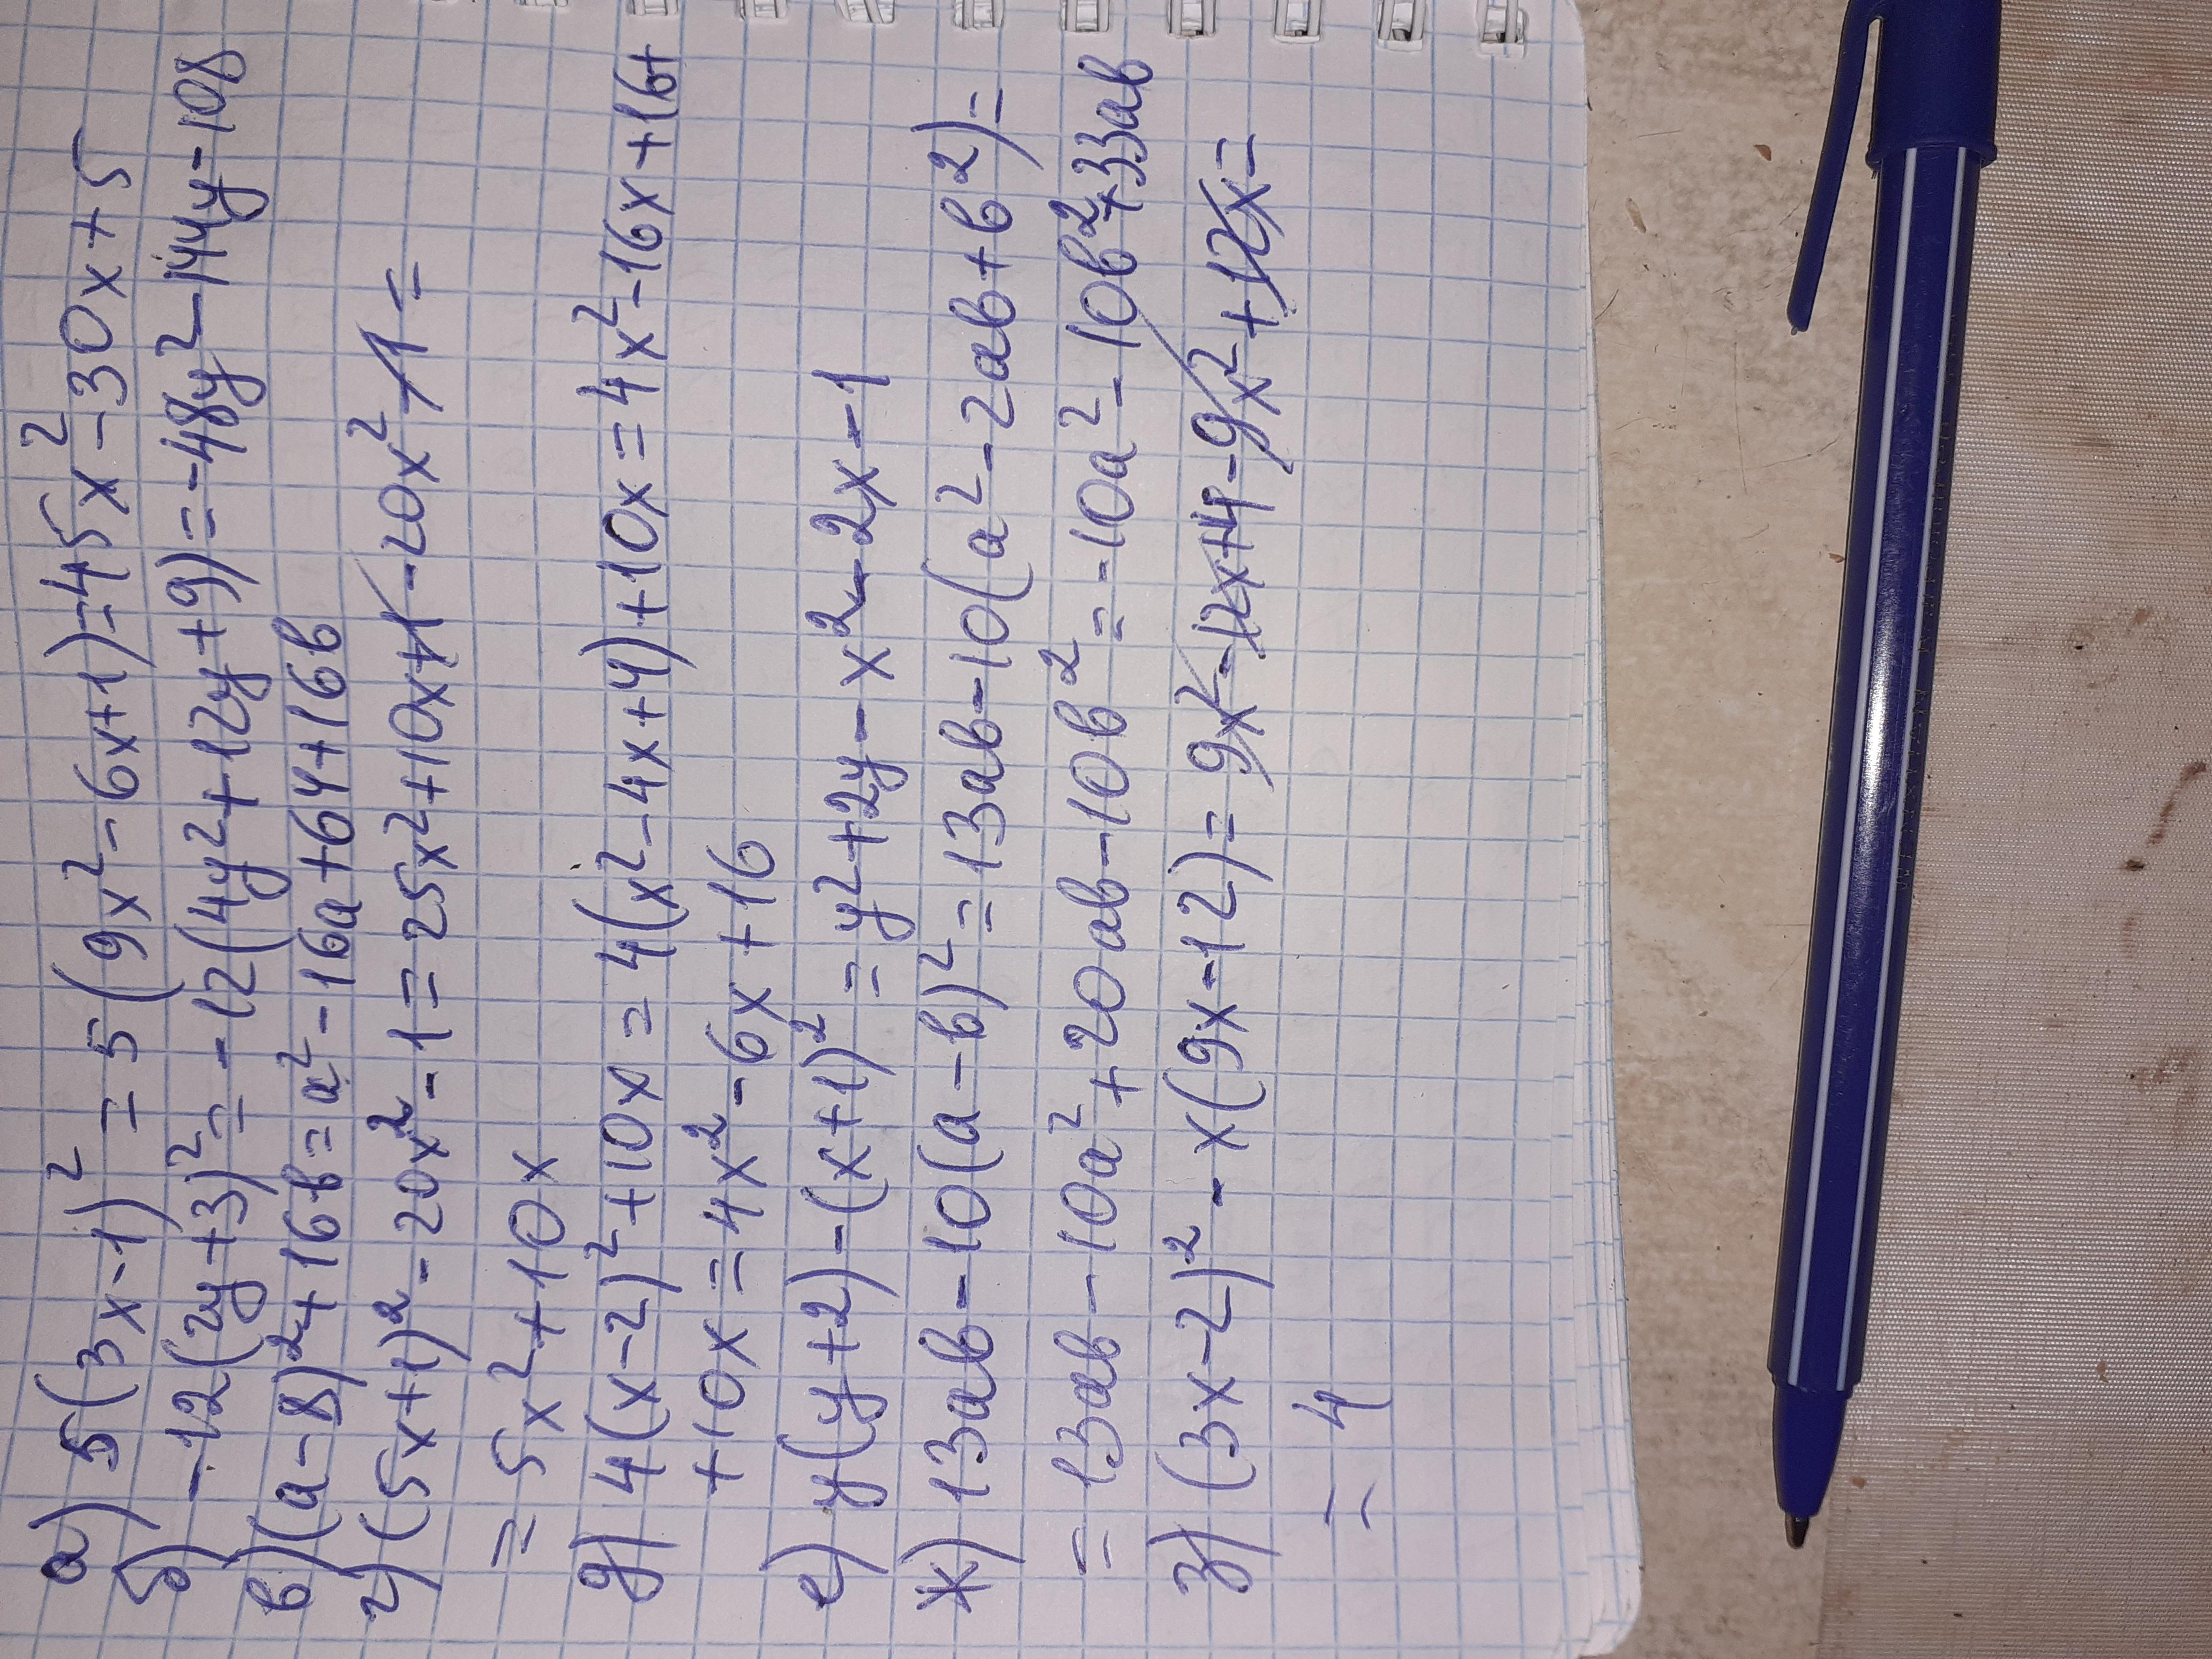 а) 5(3x-1)² = 5(9x²-6x+1)=45x²-30x+5
б) -12(2y+3)²= -12(4y²+12y+9)=-48y²-144y-108
в)(a-8)²+16b=a²-16a+64+16b
г)(5x+1)²-20x²-1=25x²+10x+1-20x²-1=
=5x²+10x
д) 4(x-2)²+10x=4(x²-4x+4)+10x=4x²-16x+16+
+10x=4x²-6x+16
е) y(y+2)-(x+1)²=y²+2y-x²-2x-1
ж) 13ab-10(a-b)²=13ab-10(a²-2ab+b²)=
=13ab-10a²+20ab-10b²=-10a²-10b²+33ab
з) (3x-2)²-x(9x-12)=9x²-12x+4-9x²+12x=
=4